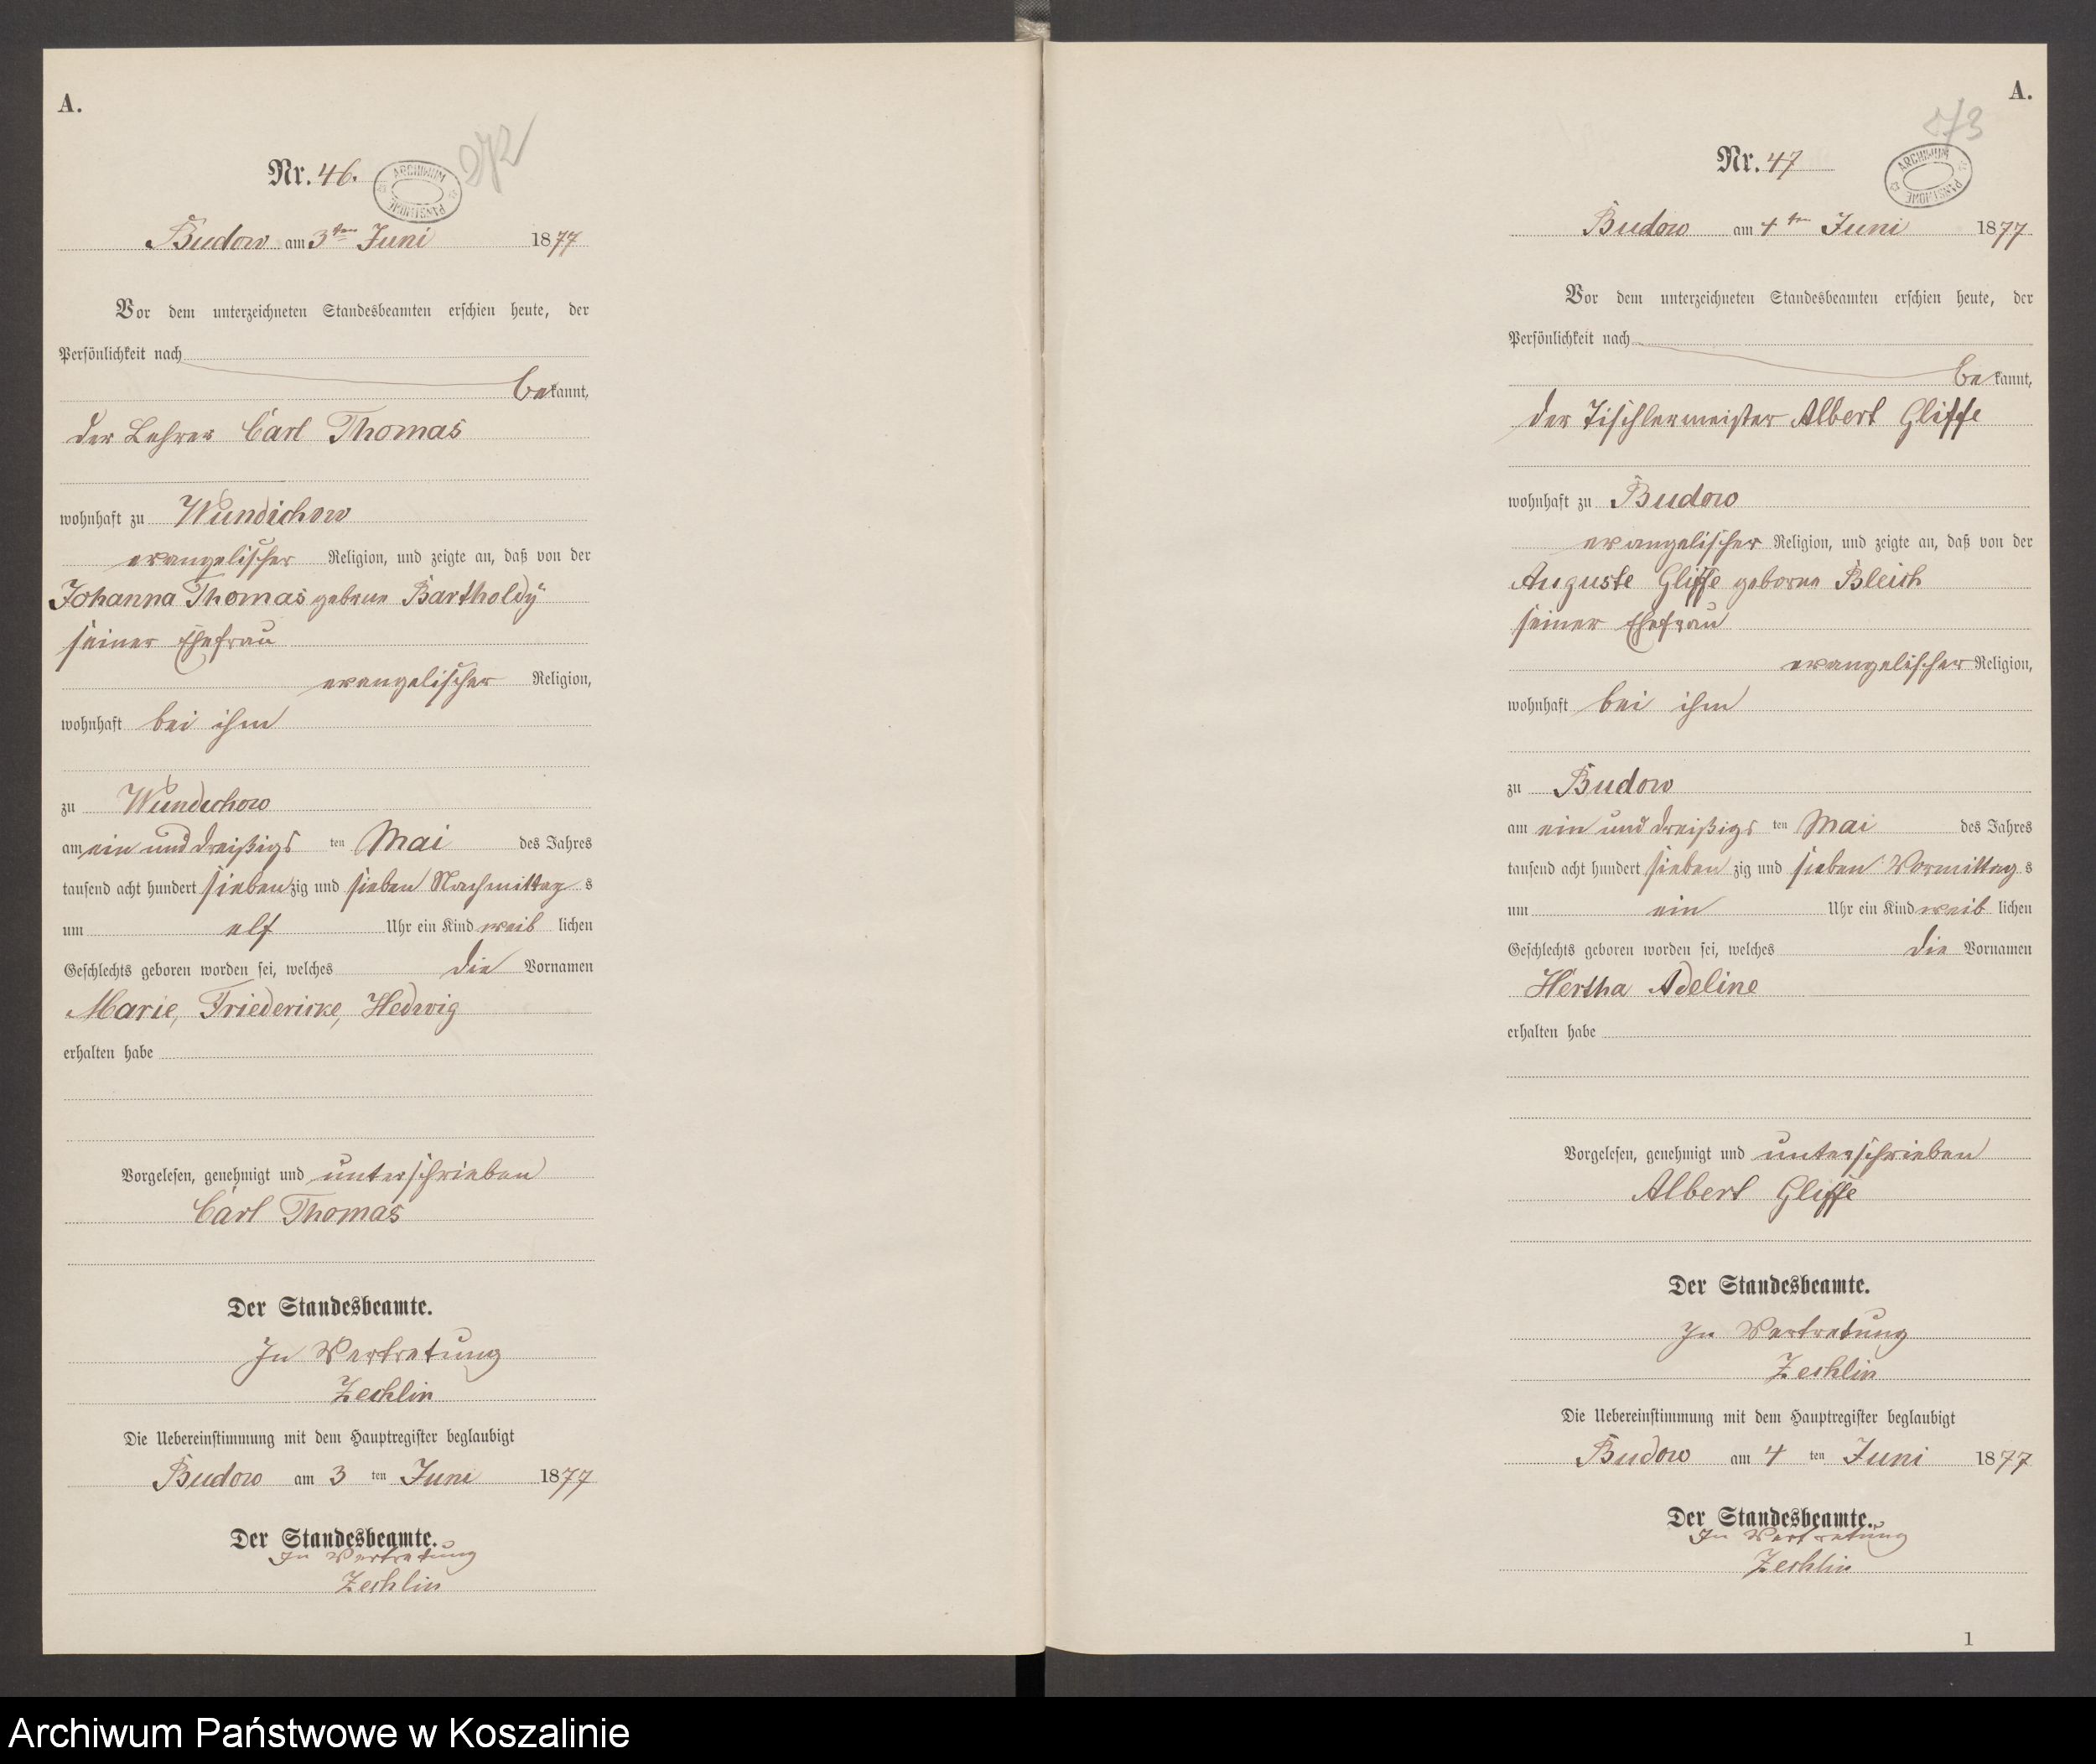 A.
Nr. 46.
272
ARCHIWUM PAŃSTWOWE
Budow am 3ten Juni 1877
Vor dem unterzeichneten Standesbeamten erschien heute, der
Persönlichkeit nach
bekannt,
der Lehrer Carl Thomas
wohnhaft zu Wundichow
evangelischer Religion, und zeigte an, daß von der
Johanna Thomas geborne Bartholdy
seiner Ehefrau
evangelischer Religion,
wohnhaft bei ihm
zu Wundichow
am ein und dreißigs ten Mai des Jahres
tausend acht hundert siebenzig und sieben Nachmittag s
um elf Uhr ein Kind weib lichen
Geschlechts geboren worden sei, welches die Vornamen
Marie, Friedericke, Hedwig
erhalten habe
Vorgelesen, genehmigt und unterschrieben
Carl Thomas
Der Standesbeamte.
In Vertretung
Zechlin
Die Uebereinstimmung mit dem Hauptregister beglaubigt
Budow am 3 ten Juni 1877
Der Standesbeamte.
In Vertretung
Zechlin
A.
273
Nr. 47
ARCHIWUM PAŃSTWOWE
Budow am 4ten Juni 1877
Vor dem unterzeichneten Standesbeamten erschien heute, der
Persönlichkeit nach
bekannt,
der Tischlermeister Albert Gliffe
wohnhaft zu Budow
evangelischer Religion, und zeigte an, daß von der
Auguste Gliffe geborne Bleich
seiner Ehefrau
evangelischer Religion,
wohnhaft bei ihm
zu Budow
am ein und dreißigs ten Mai des Jahres
tausend acht hundert sieben zig und sieben Vormittag s
um ein Uhr ein Kind weib lichen
Geschlechts geboren worden sei, welches die Vornamen
Hertha Adeline
erhalten habe
Vorgelesen, genehmigt und unterschrieben
Albert Gliffe
Der Standesbeamte.
In Vertretung
Zechlin
Die Uebereinstimmung mit dem Hauptregister beglaubigt
Budow am 4 ten Juni 1877
Der Standesbeamte.
In Vertretung
Zechlin
1
Archiwum Państwowe w Koszalinie